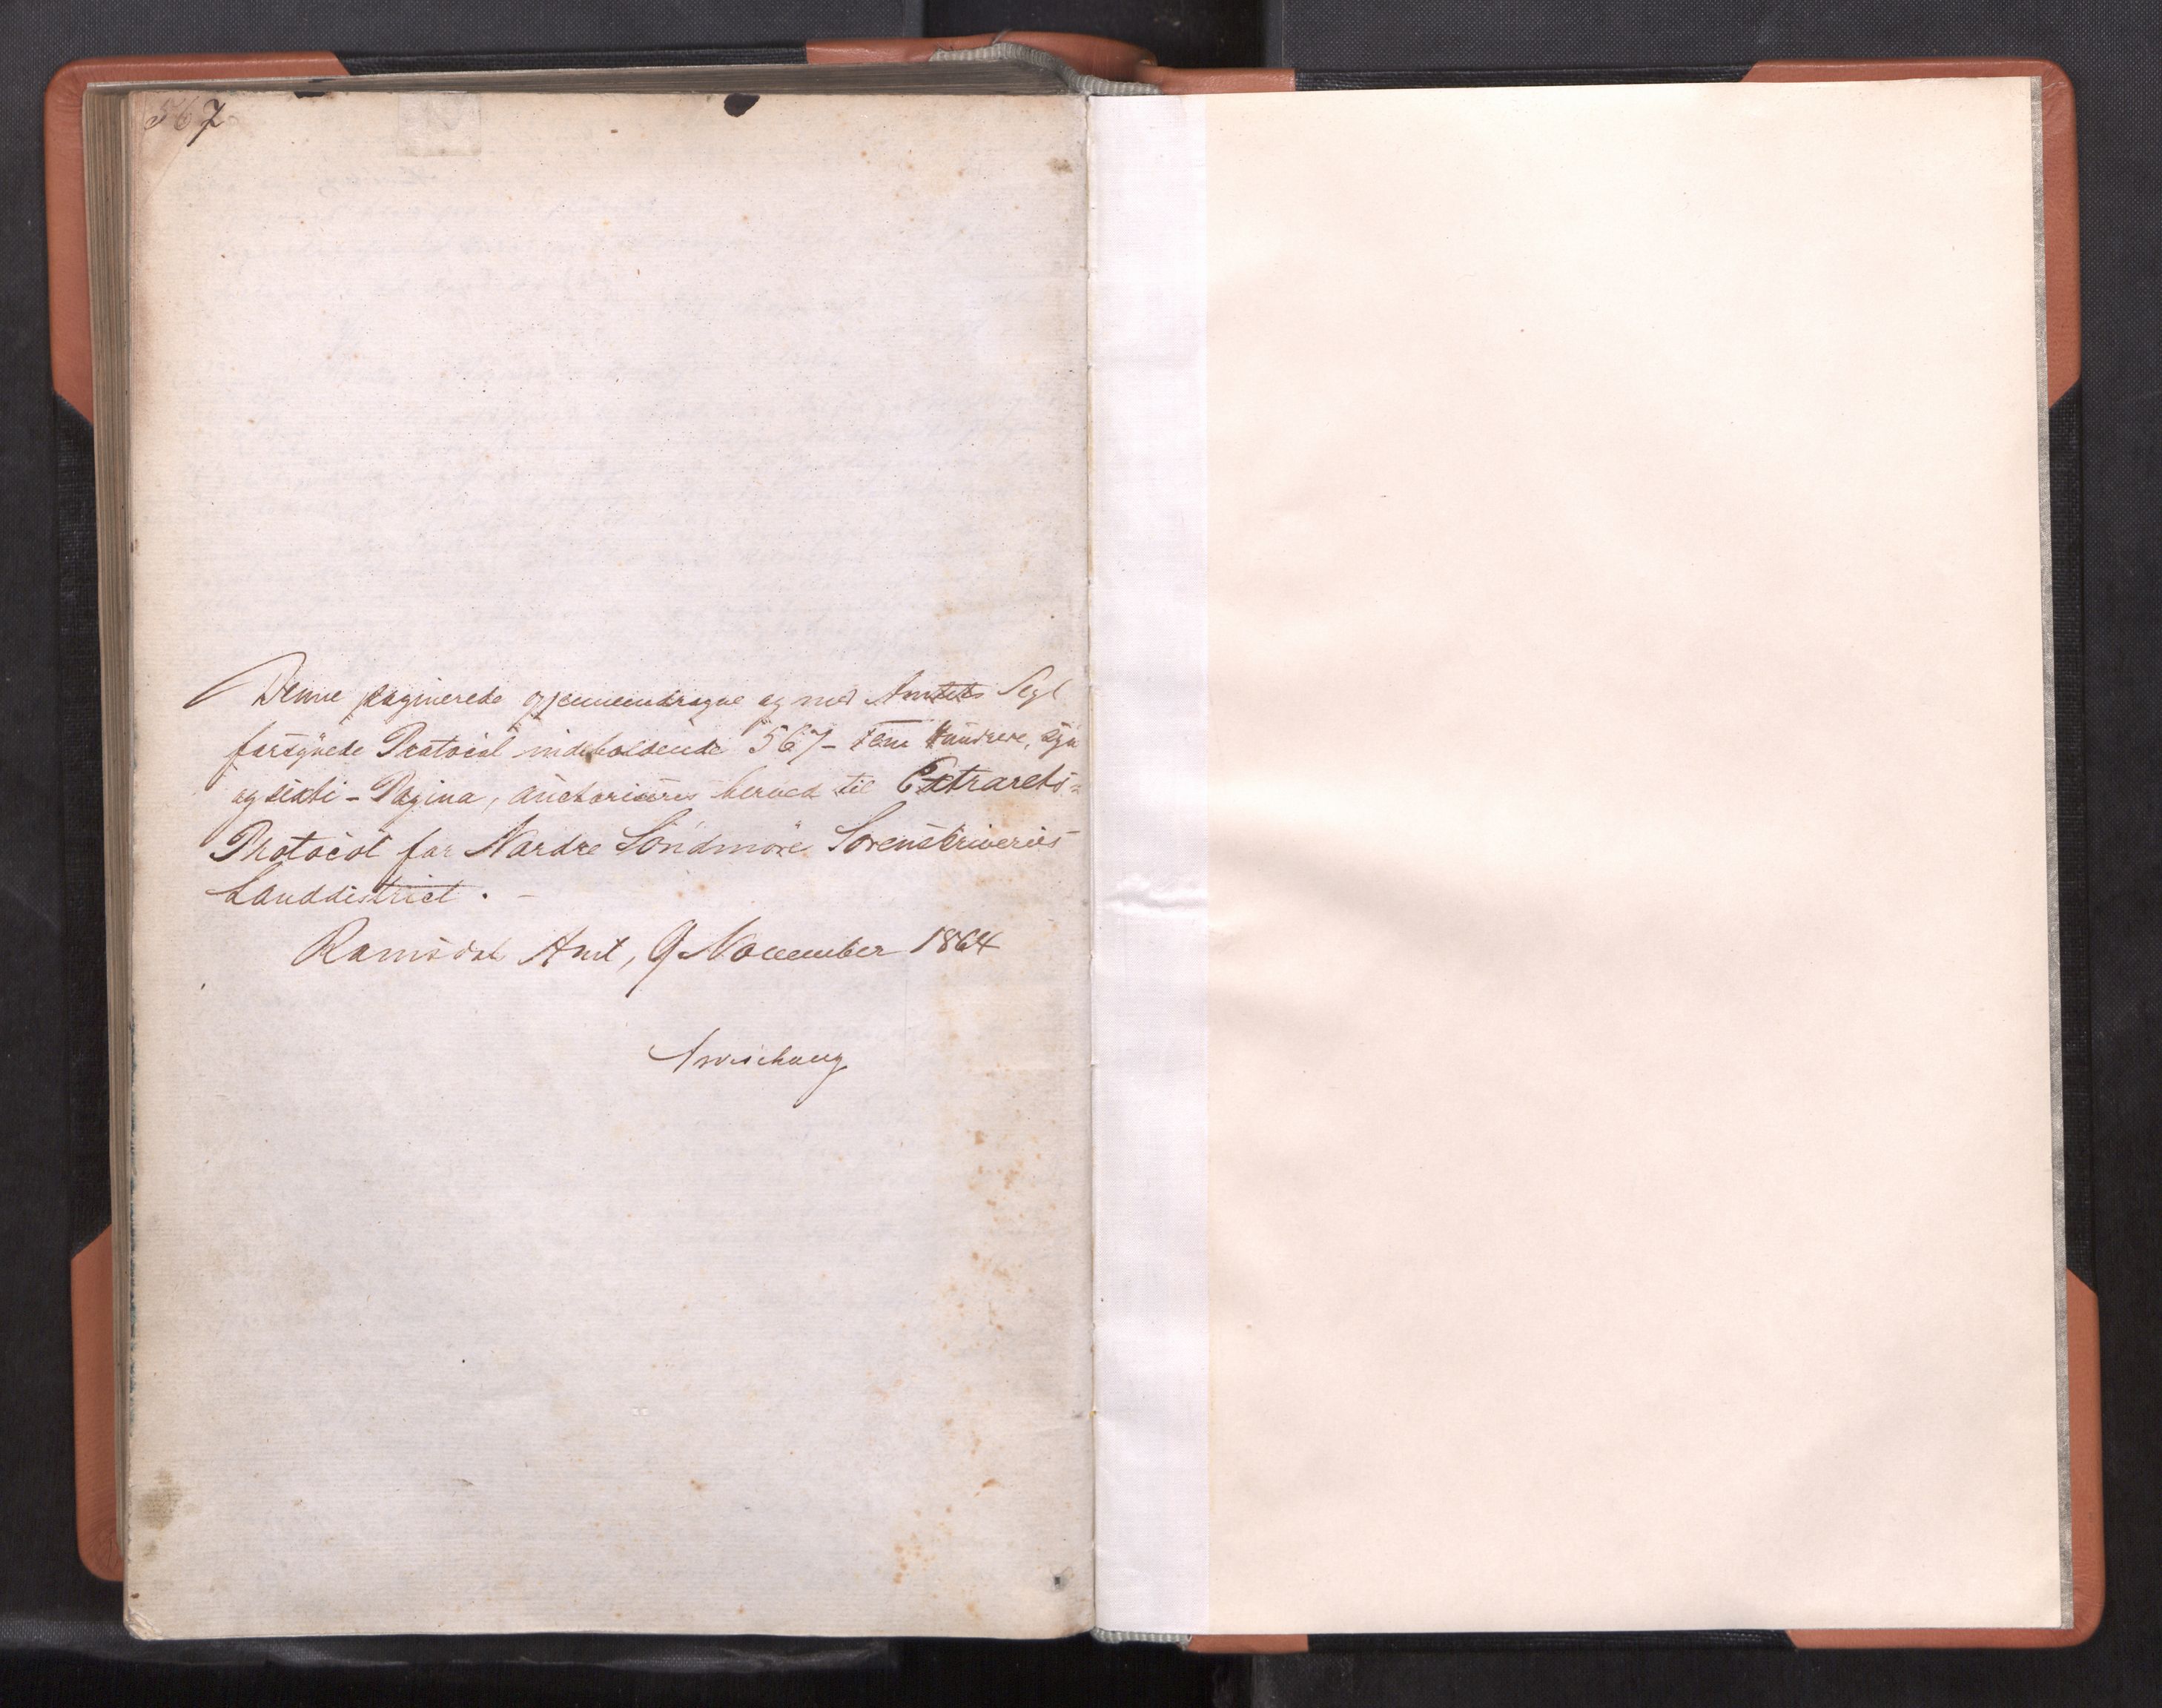 567
Denne paginerede gjennemdragne og med Amtets Segl
forsynede Protocol indeholdende 567 - fem Hundrede, syv
og sexti - Pagina, auctoriseres herved til Extrarets-
Protocol for Nordre Söndmöre Sorenskriveries
Landdistrict. -
Romsdals Amt, 9 November 1864